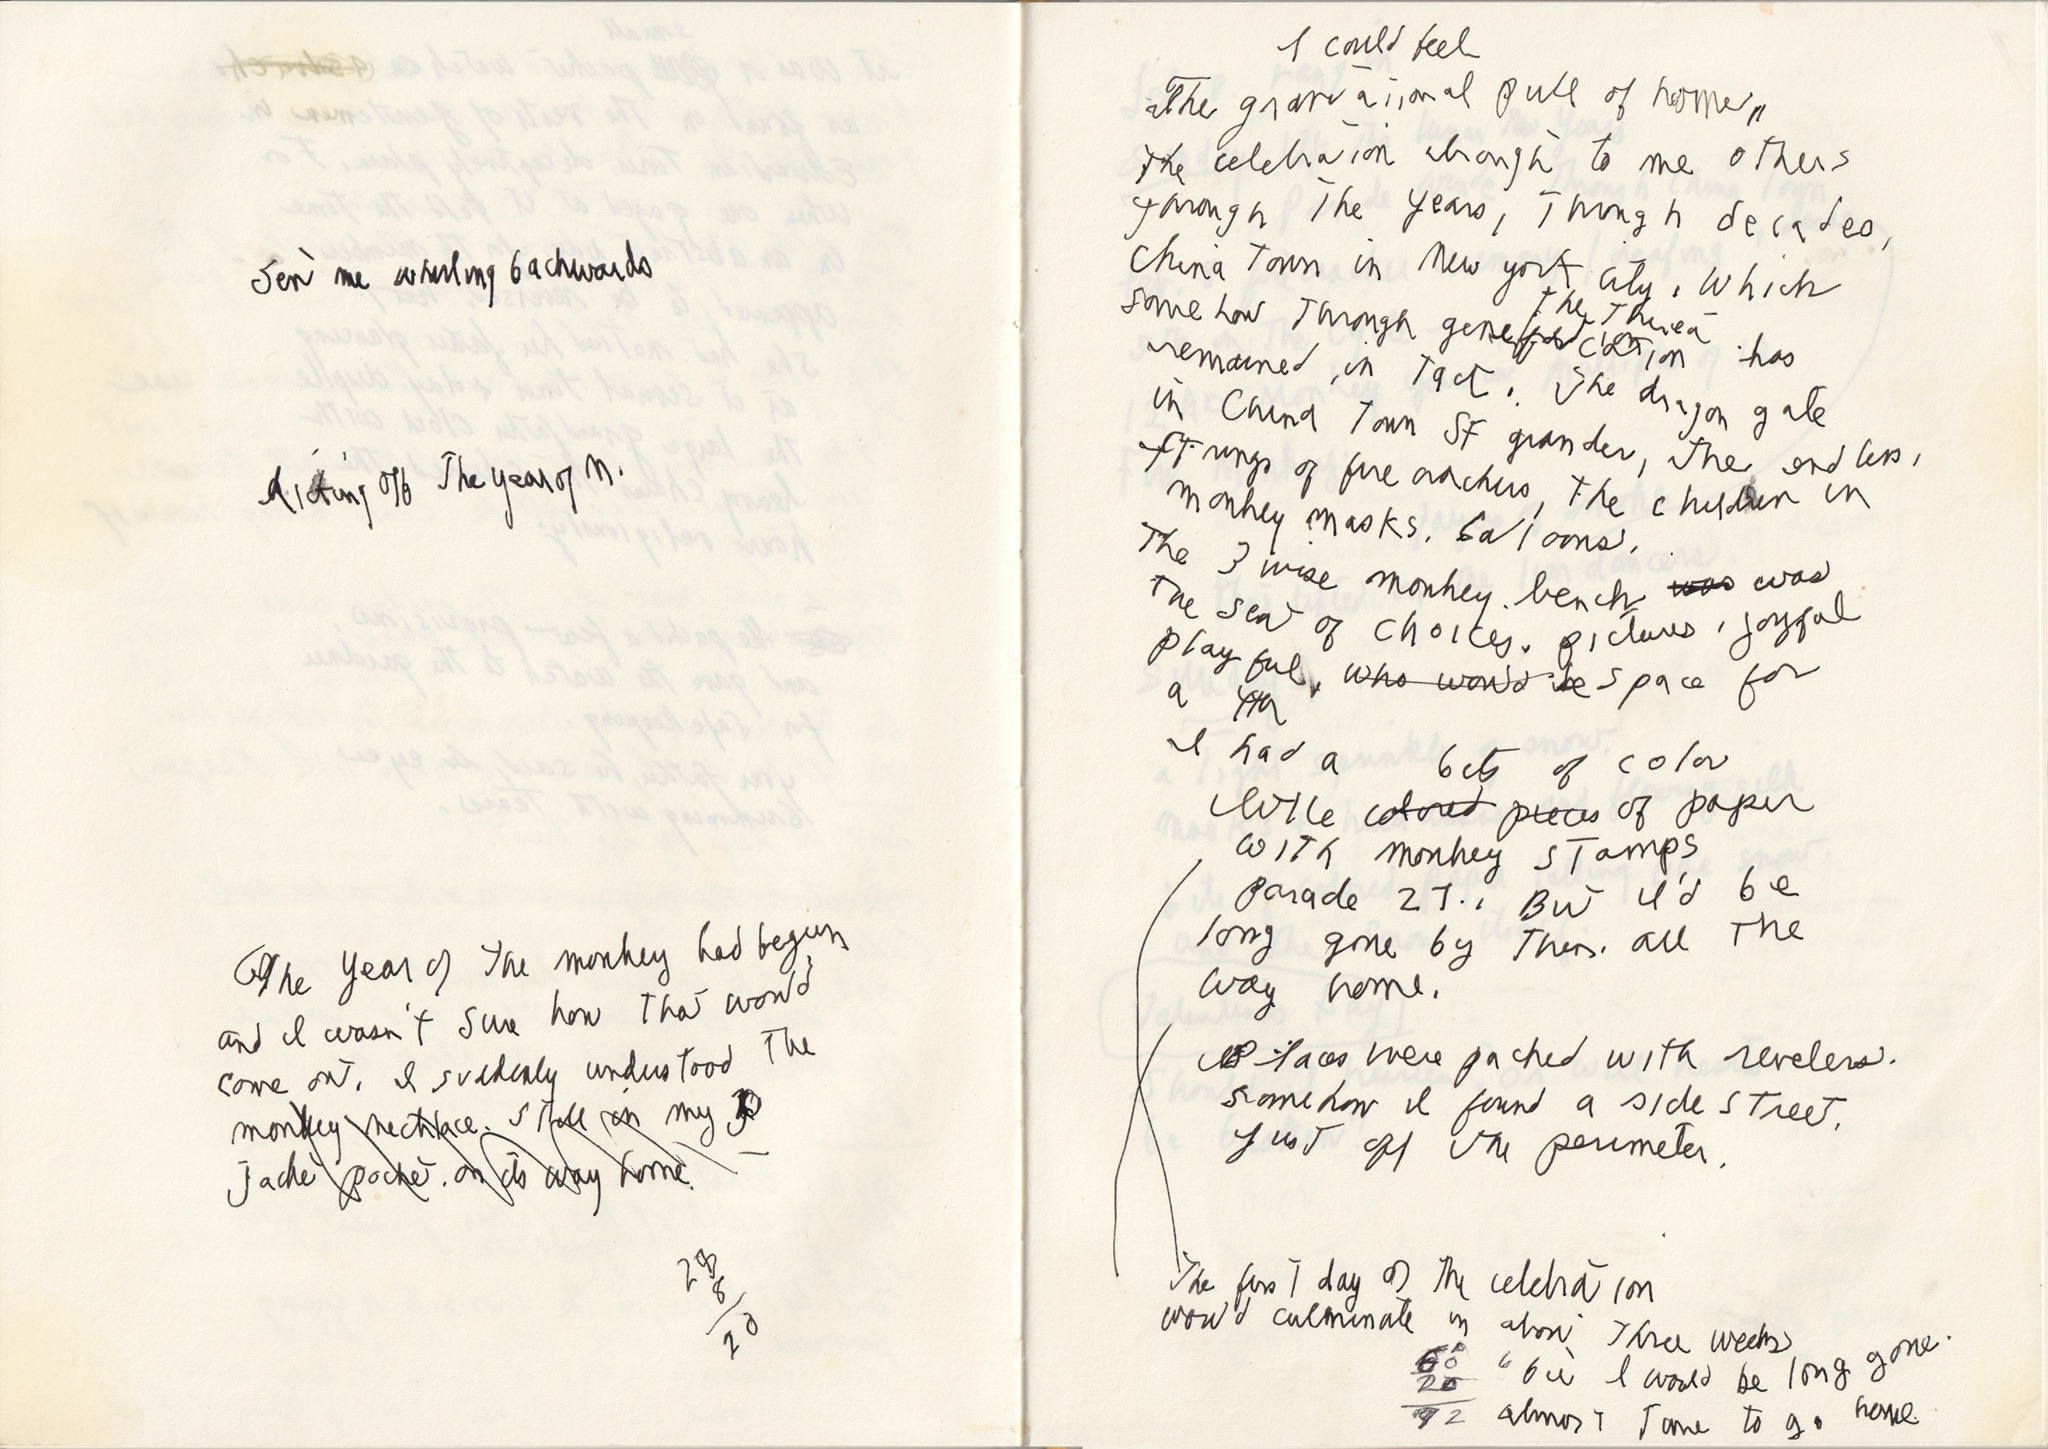 Sent me whirling backwards
Kicking off The year of M.
The year of the monkey had begun,
and I wasn't sure how that would
come out. I suddenly understood the
monkey necklace. still in my
jacket pocket. on its way home.
28
8
20
I could feel
The gravitational pull of home,,
The celebration brought to me others
through the years, Through decades,
China Town in New york city, which
somehow through the
remained in tact. The dragon gate
in China Town SF grander, the endless,
strings of fire crackers, the children in
monkey masks. balloons.
The 3 wise monkey bench was was
The seat of choices. pictures, joyful
playful, who would be space for
a
I had a bits of color
little colored pieces of paper
with monkey stamps
parade 27., But I'd be
long gone by then. all the
way home.
places were packed with revelers.
somehow I found a side street,
just off the perimeter.
The first day of the celebration
would culminate in about three weeks
but I would be long gone.
almost Time to go home.